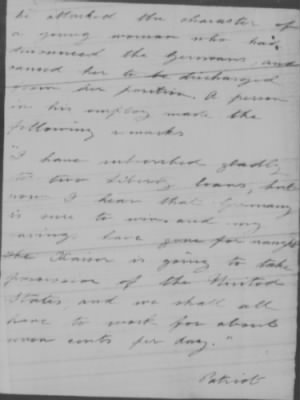 he attacked the character of
a young woman who has
denounced the Germans, and
caused her to be discharged
from her position. A person
in his employ made the
following remarks
"I have subscribed gladly
to two Liberty loans, but
now I hear that Germany
is sure to win and my
saving have gone for naught
the Kaiser is going to take
possession of the United
States and we shall all
have to work for about
seven cents per day."
Patriot